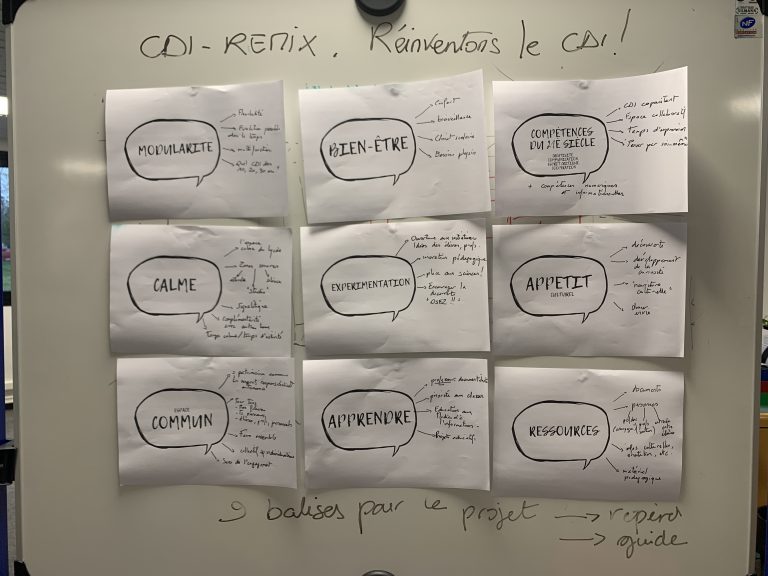 CDI-REMIX. Réinventons le CDI!
MODULARITE
Flexibilité
Evolution possible
dans le temps
multifonction
Quel CDI dans
10, 20, 30 ans
BIEN-ÊTRE
Confort
bienveillance
Climat scolaire
Besoins physio
COMPÉTENCES
DU 21E SIÈCLE
CREATIVITE
COMMUNICATION
ESPRIT CRITIQUE
COOPERATION
CDI capacitant
Espace collaboratif
Temps d'expression
Penser par soi-même
+ compétences numériques
et informationnelles
CALME
l'espace
calme du lycée
Zones sonores
étude
silence
Signalétique
complémentarité
avec autres lieux
Temps calme/temps d'activité
EXPERIMENTATION
Ouverture aux initiatives
Idées des élèves, profs.
innovation pédagogique
place aux sciences!
Encourager la
"OSEZ !!"
APPETIT
CULTUREL
découverte
développement
de la
curiosité
"nourriture
culturelle"
donner
envie
ESPACE
COMMUN
patrimoine commun
Faire ensemble
Sens de l'engagement
APPRENDRE
professeur documentaliste
priorité aux classes
Education aux
Médias et à
l'information
Projets éducatifs
RESSOURCES
documents
personnes
matériel
pédagogique
9 balises pour le projet → repères
→ guide
NF